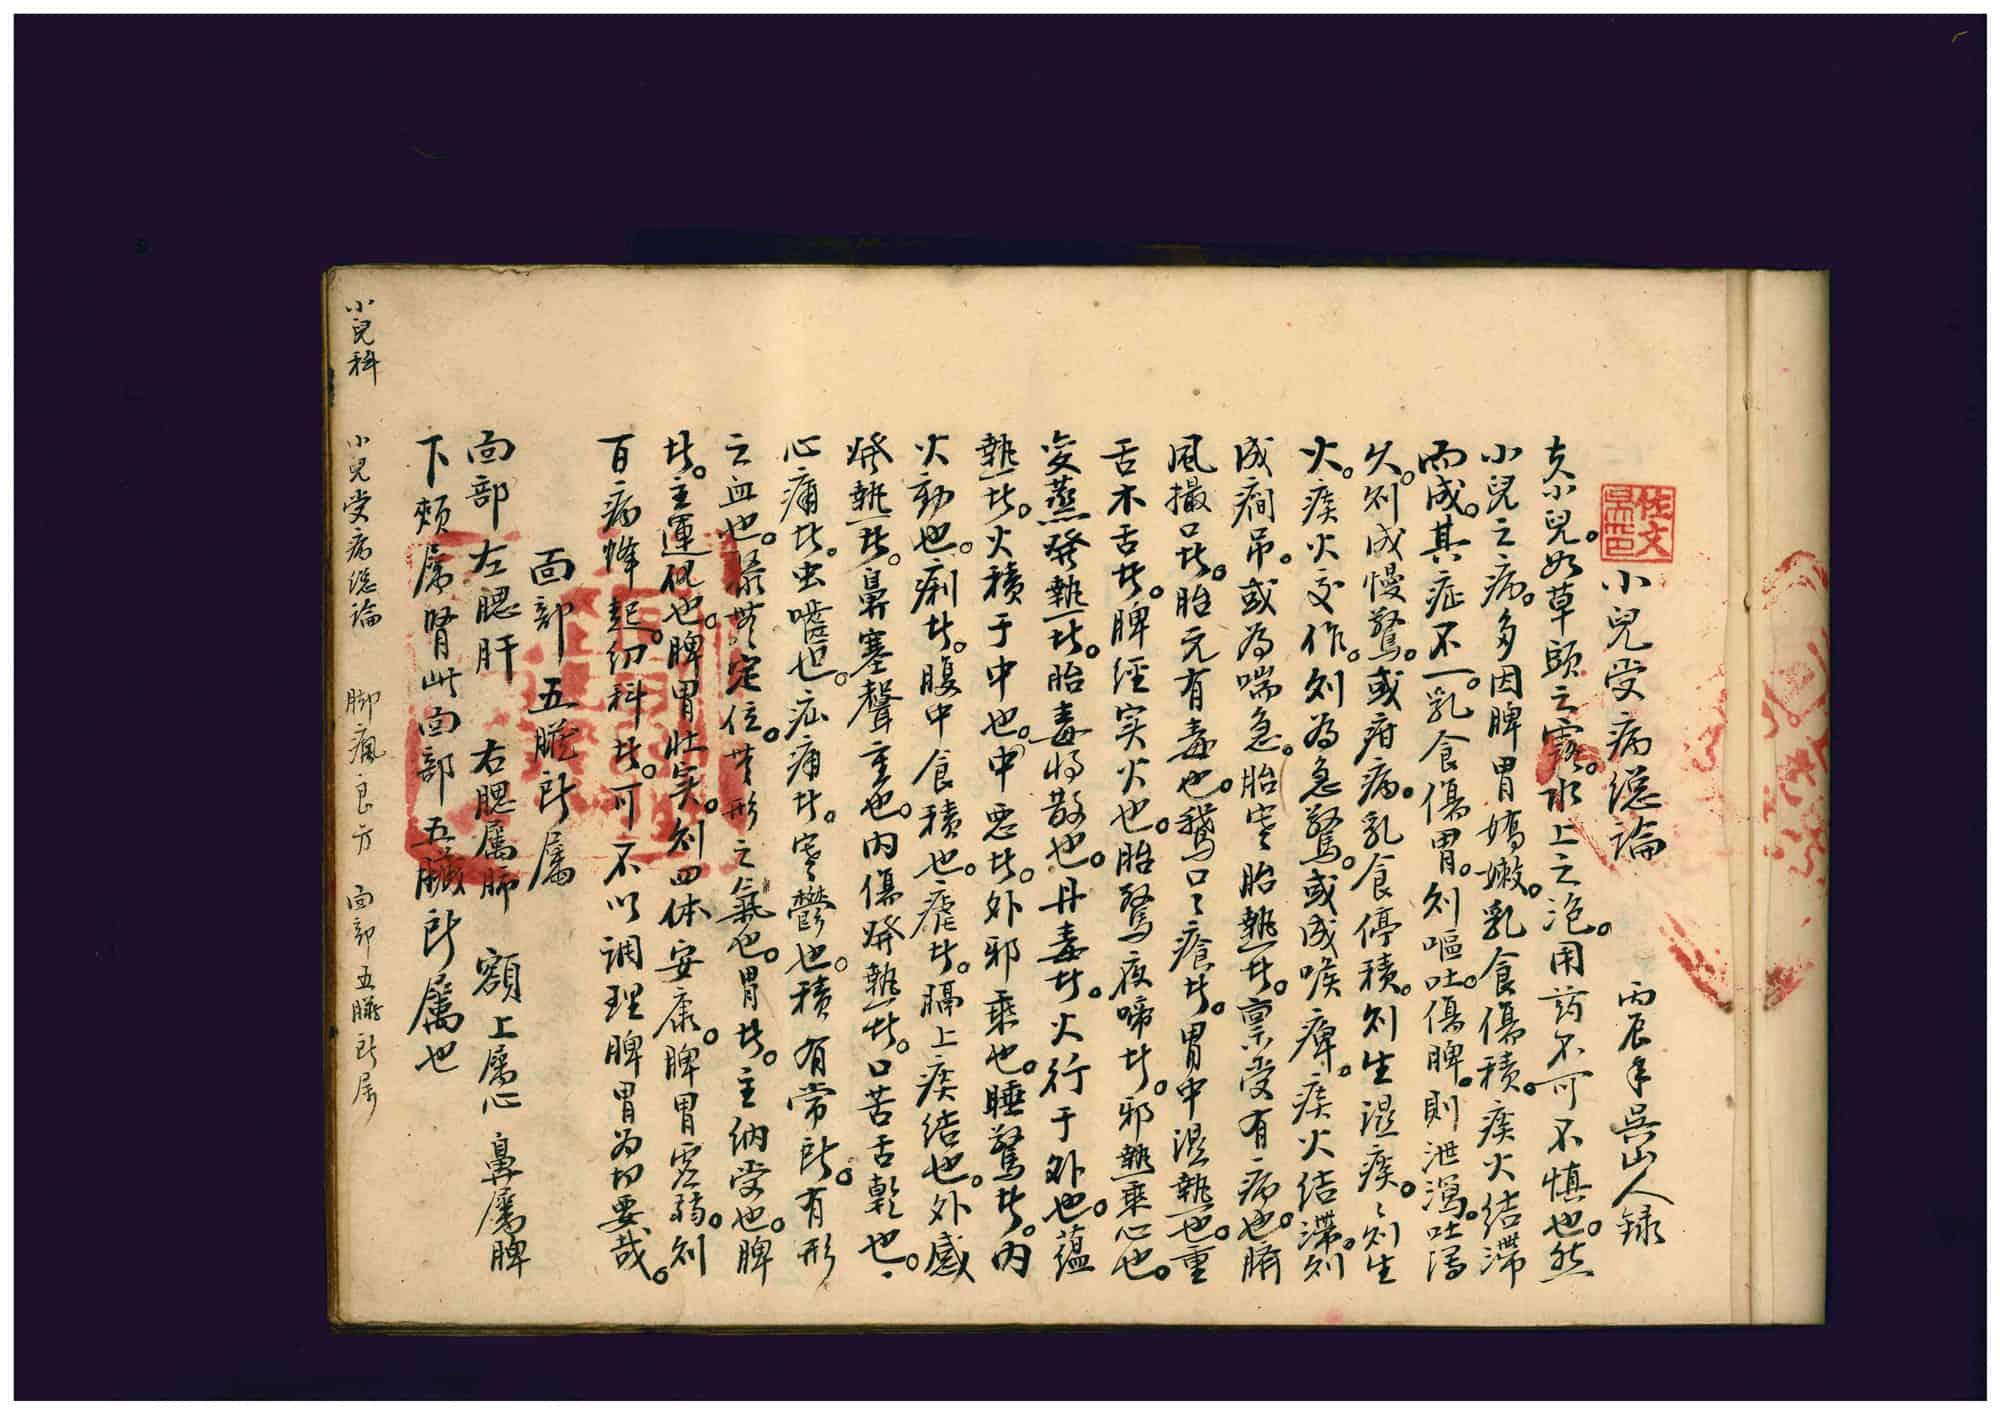 小兒受病總論　丙辰年吳山人録
夫小兒如草頭之露。水上之泡。用药不可不慎也。然
小兒之病。多因脾胃嬌嫩。乳食傷積。痰火结滯
而成。其症不一。乳食傷胃。则嘔吐。傷脾。則泄瀉。吐瀉
久。则成慢驚。或疳病。乳食停積。则生湿痰。〻则生
火。痰火交作。则為急驚。或成喉痺。痰火结滯。则
成癇吊。或為喘急。胎寒胎熱者。禀受有病也。臍
風撮口者。胎元有毒也。鵝口〻瘡者。胃中濕熱也。重
舌木舌者。脾經实火也。胎驚夜啼者。邪熱乘心也。
変蒸發熱者。胎毒将散也。丹毒者。火行于外也。蕴
熱者。火積于中也。中惡者。外邪乘也。睡驚者。内
火動也。痢者。腹中食積也。瘧者。膈上痰结也。外感
發熱者。鼻塞聲重也。内傷發熱者。口苦舌乾也。
心痛者。虫嚙也。疝痛者。寒鬱也。積有常所。有形
之血也。聚無定位。無形之氣也。胃者。主納受也。脾
者。主運化也。脾胃壮实。则四体安康。脾胃虚弱。则
百病蜂起。幼科者。可不以調理脾胃为切要哉。
面部五臟所屬
面部左腮肝　右腮属肺　額上屬心　鼻屬脾
下頦属腎此面部五臟所屬也
小兒科　小兒受病總論　脚瘋良方　面部五臟所屬
佐文